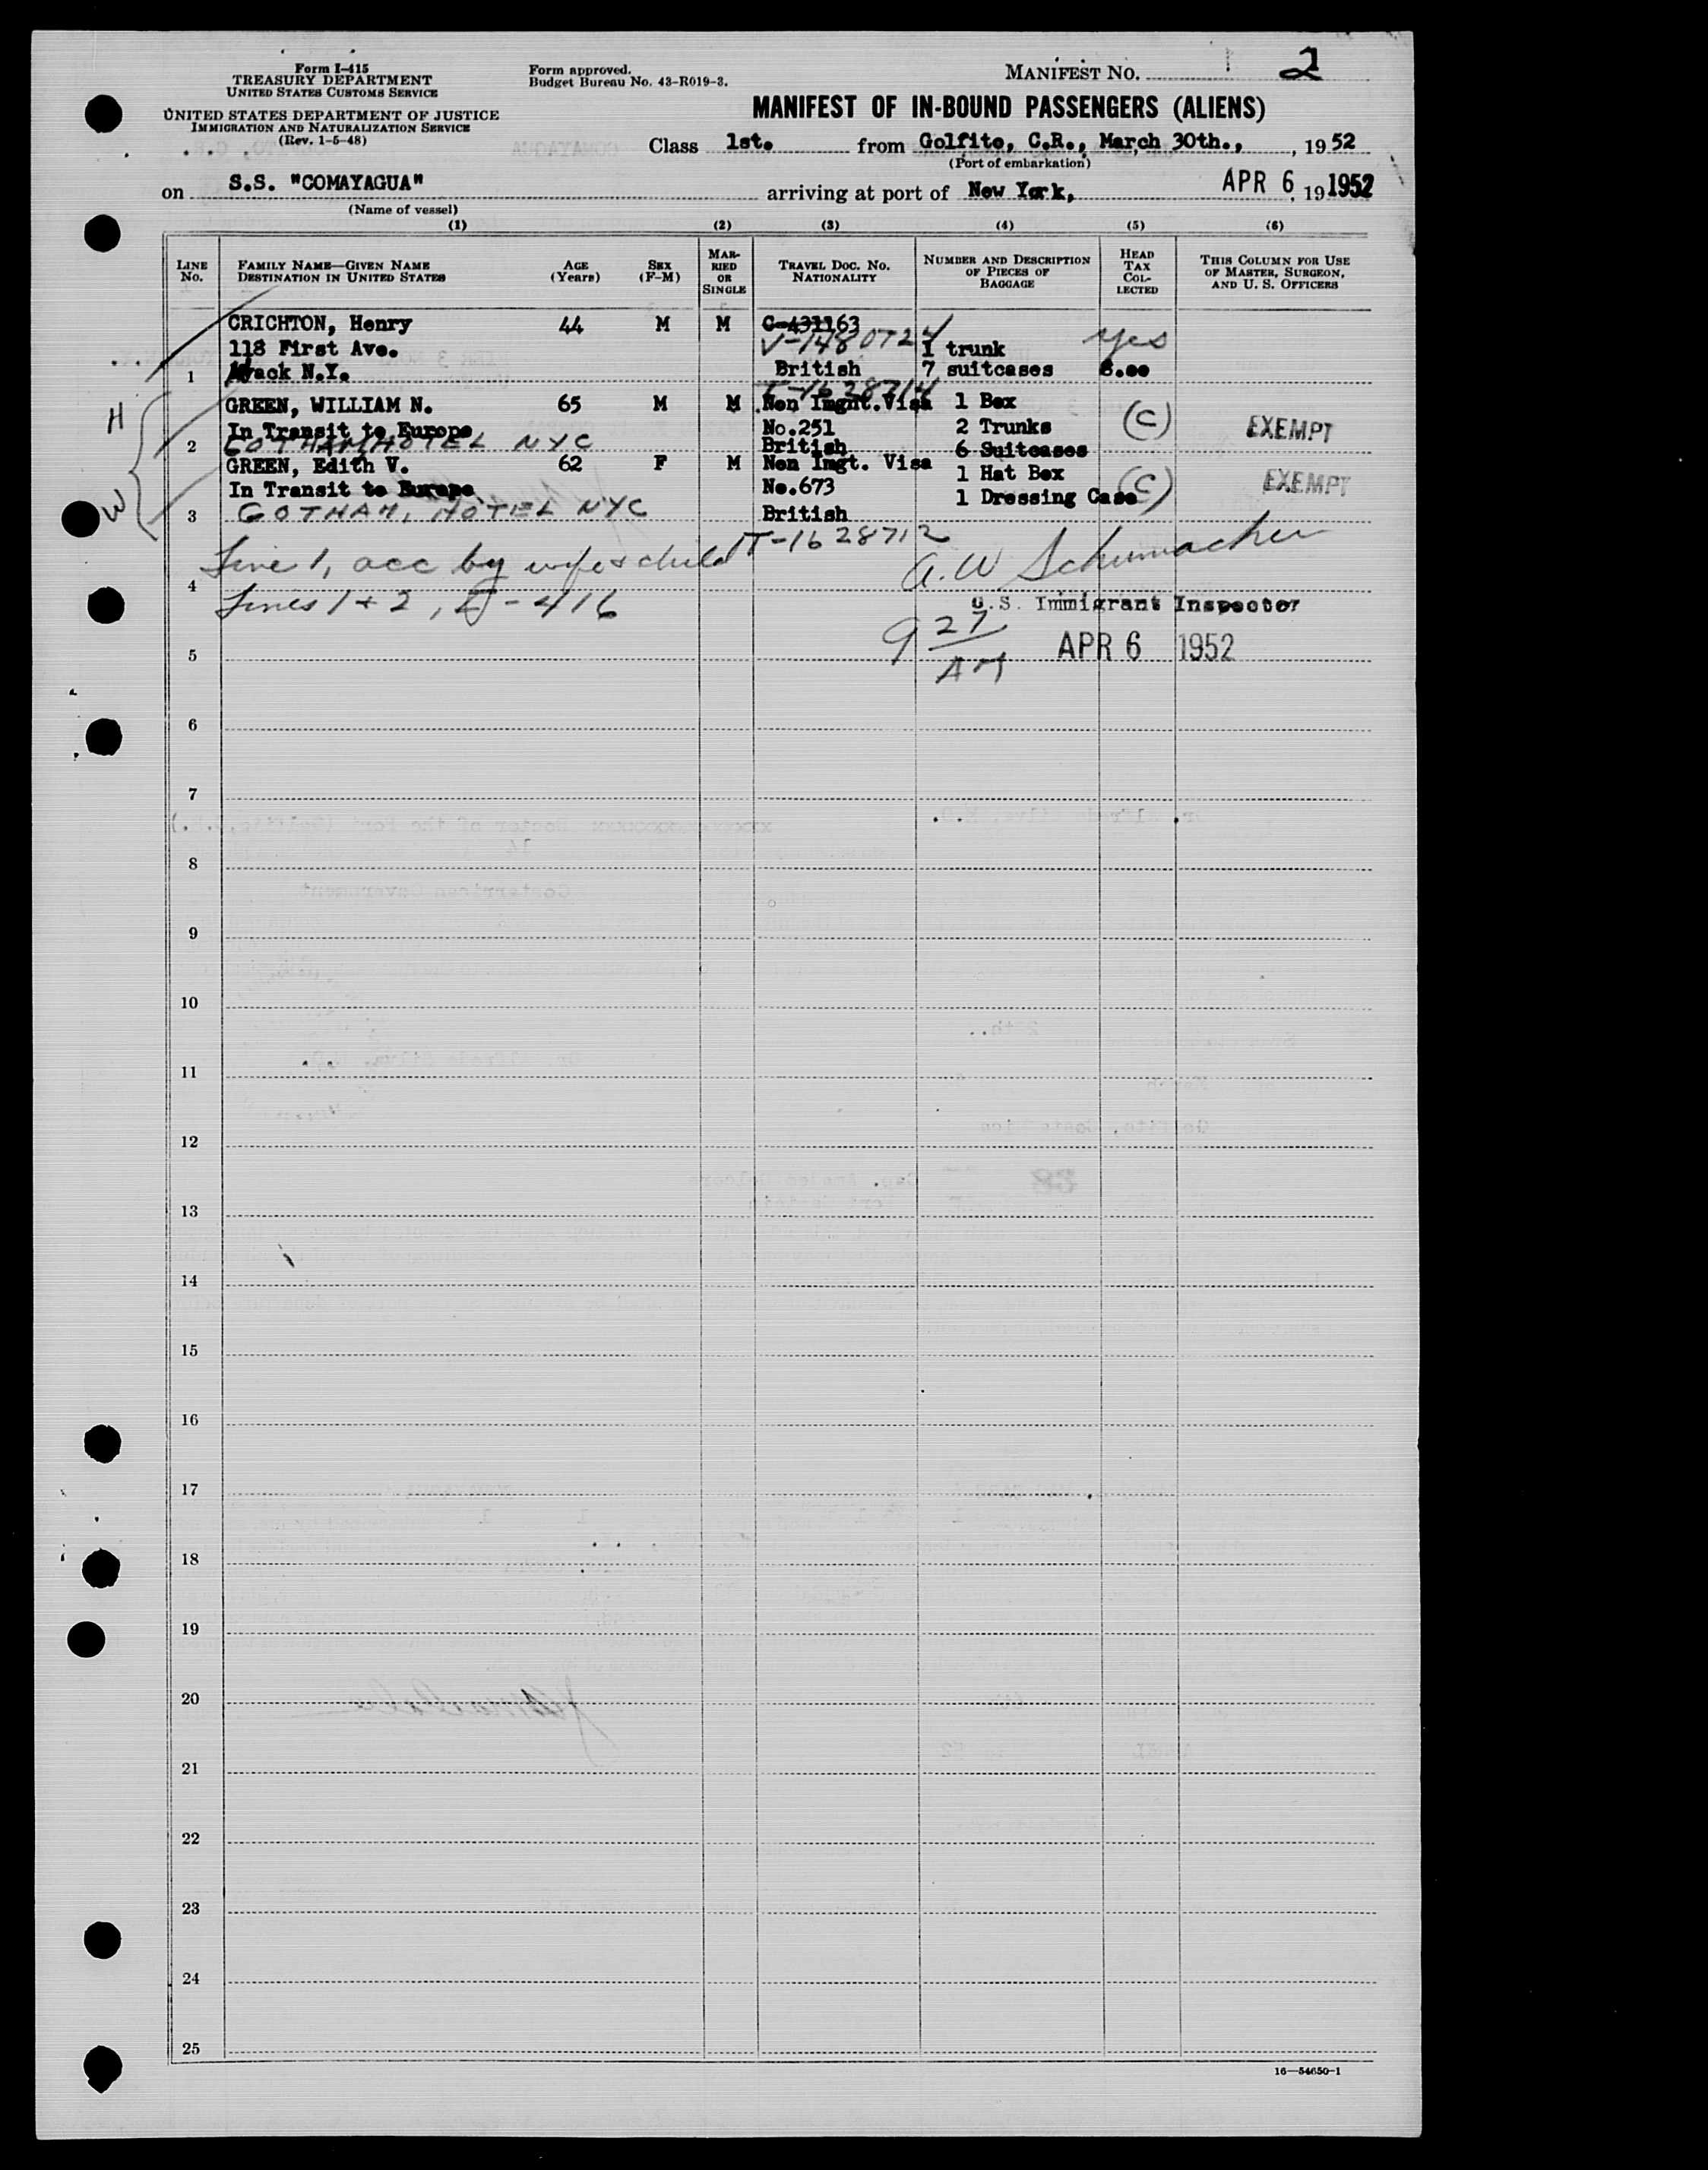 Form I-415
TREASURY DEPARTMENT
UNITED STATES CUSTOMS SERVICE
UNITED STATES DEPARTMENT OF JUSTICE
IMMIGRATION AND NATURALIZATION SERVICE
(Rev. 1-5-48)
Form approved.
Budget Bureau No. 43-R019-3.
MANIFEST NO. 2
MANIFEST OF IN-BOUND PASSENGERS (ALIENS)
Class 1st. from Golfito, C.R., March 30th., , 1952
(Port of embarkation)
on S.S. "COMAYAGUA" arriving at port of New York, APR 6, 19 1952
(Name of vessel)
(1) (2) (3) (4) (5) (6)
LINE No.
FAMILY NAME—GIVEN NAME
DESTINATION IN UNITED STATES
AGE (Years)
SEX (F-M)
MARRIED OR SINGLE
TRAVEL DOC. No.
NATIONALITY
NUMBER AND DESCRIPTION OF PIECES OF BAGGAGE
HEAD TAX COLLECTED
THIS COLUMN FOR USE OF MASTER, SURGEON, AND U. S. OFFICERS
CRICHTON, Henry 44 M M C-431163
V-1480724
118 First Ave. 1 trunk yes
1 Nyack N.Y. British 7 suitcases 8.00
T-1628714
H
GREEN, WILLIAM N. 65 M M Non Imgnt.Visa 1 Box
In Transit to Europe No.251 2 Trunks (C) EXEMPT
2 GOTHAM HOTEL NYC British 6 Suitcases
W
GREEN, Edith V. 62 F M Non Imgt. Visa 1 Hat Box
In Transit to Europe No.673 1 Dressing Case (C) EXEMPT
3 GOTHAM, HOTEL NYC British
T-1628712
Line 1, acc by wife & child
A.W Schumacher
4
Lines 1 + 2, E-416
U.S. Immigrant Inspector
9 27 AM APR 6 1952
5
6
7
8
9
10
11
12
13
14
15
16
17
18
19
20
21
22
23
24
25
16—54650-1